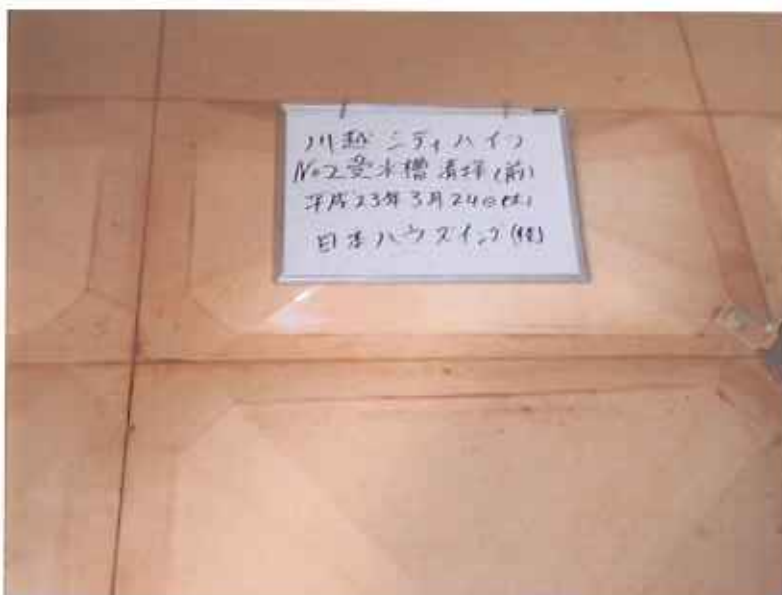 川越シティハイツ
No2受水槽清掃(前)
平成23年3月24日(木)
日本ハウズイング(株)